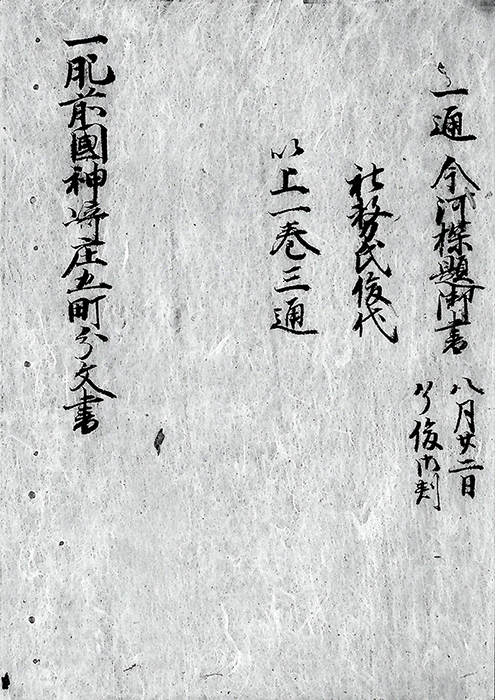 一通 今河探題御書
八月廿二日
了俊御判
社務氏俊代
以上一巻三通
一肥前國神崎庄五町分文書